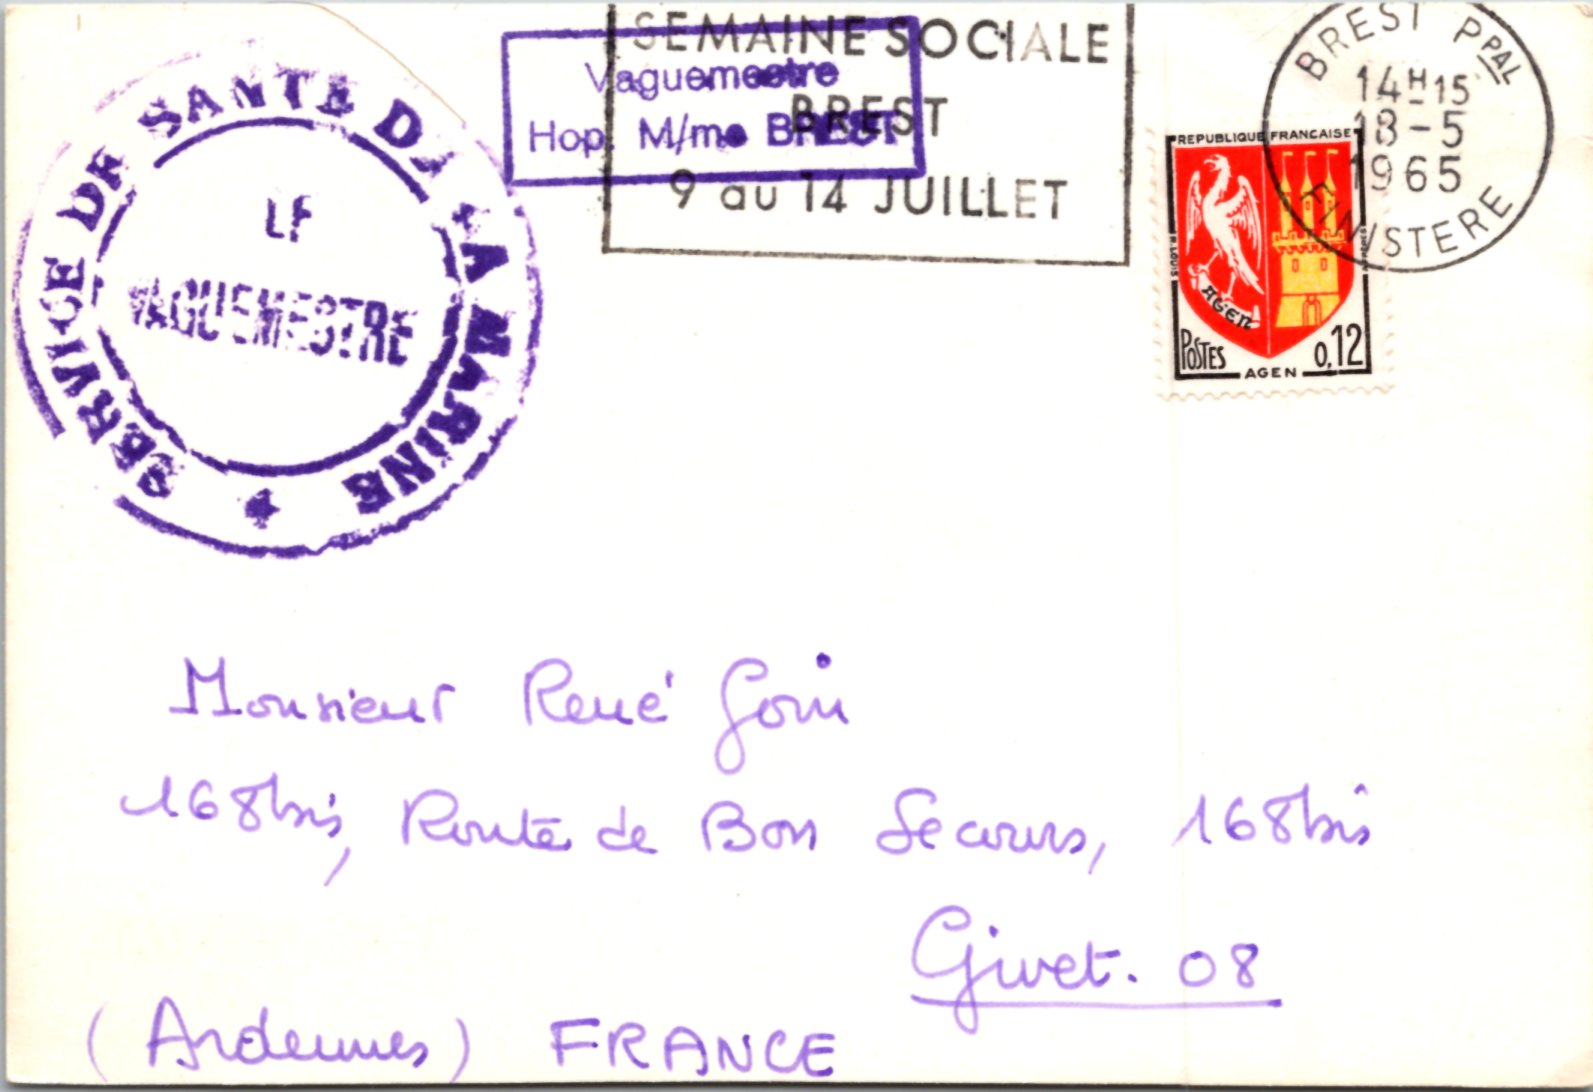 SERVICE DE SANTÉ DE LA MARINE
LE
VAGUEMESTRE
Vaguemestre
Hop. M/me BREST
SEMAINE SOCIALE
BREST
9 au 14 JUILLET
BREST PPAL
14H15
18-5
1965
FINISTERE
REPUBLIQUE FRANCAISE
AGEN
POSTES
0,12
AGEN
Monsieur René Goin
168bis, Route de Bon Secours, 168bis
Givet. 08
(Ardennes) FRANCE